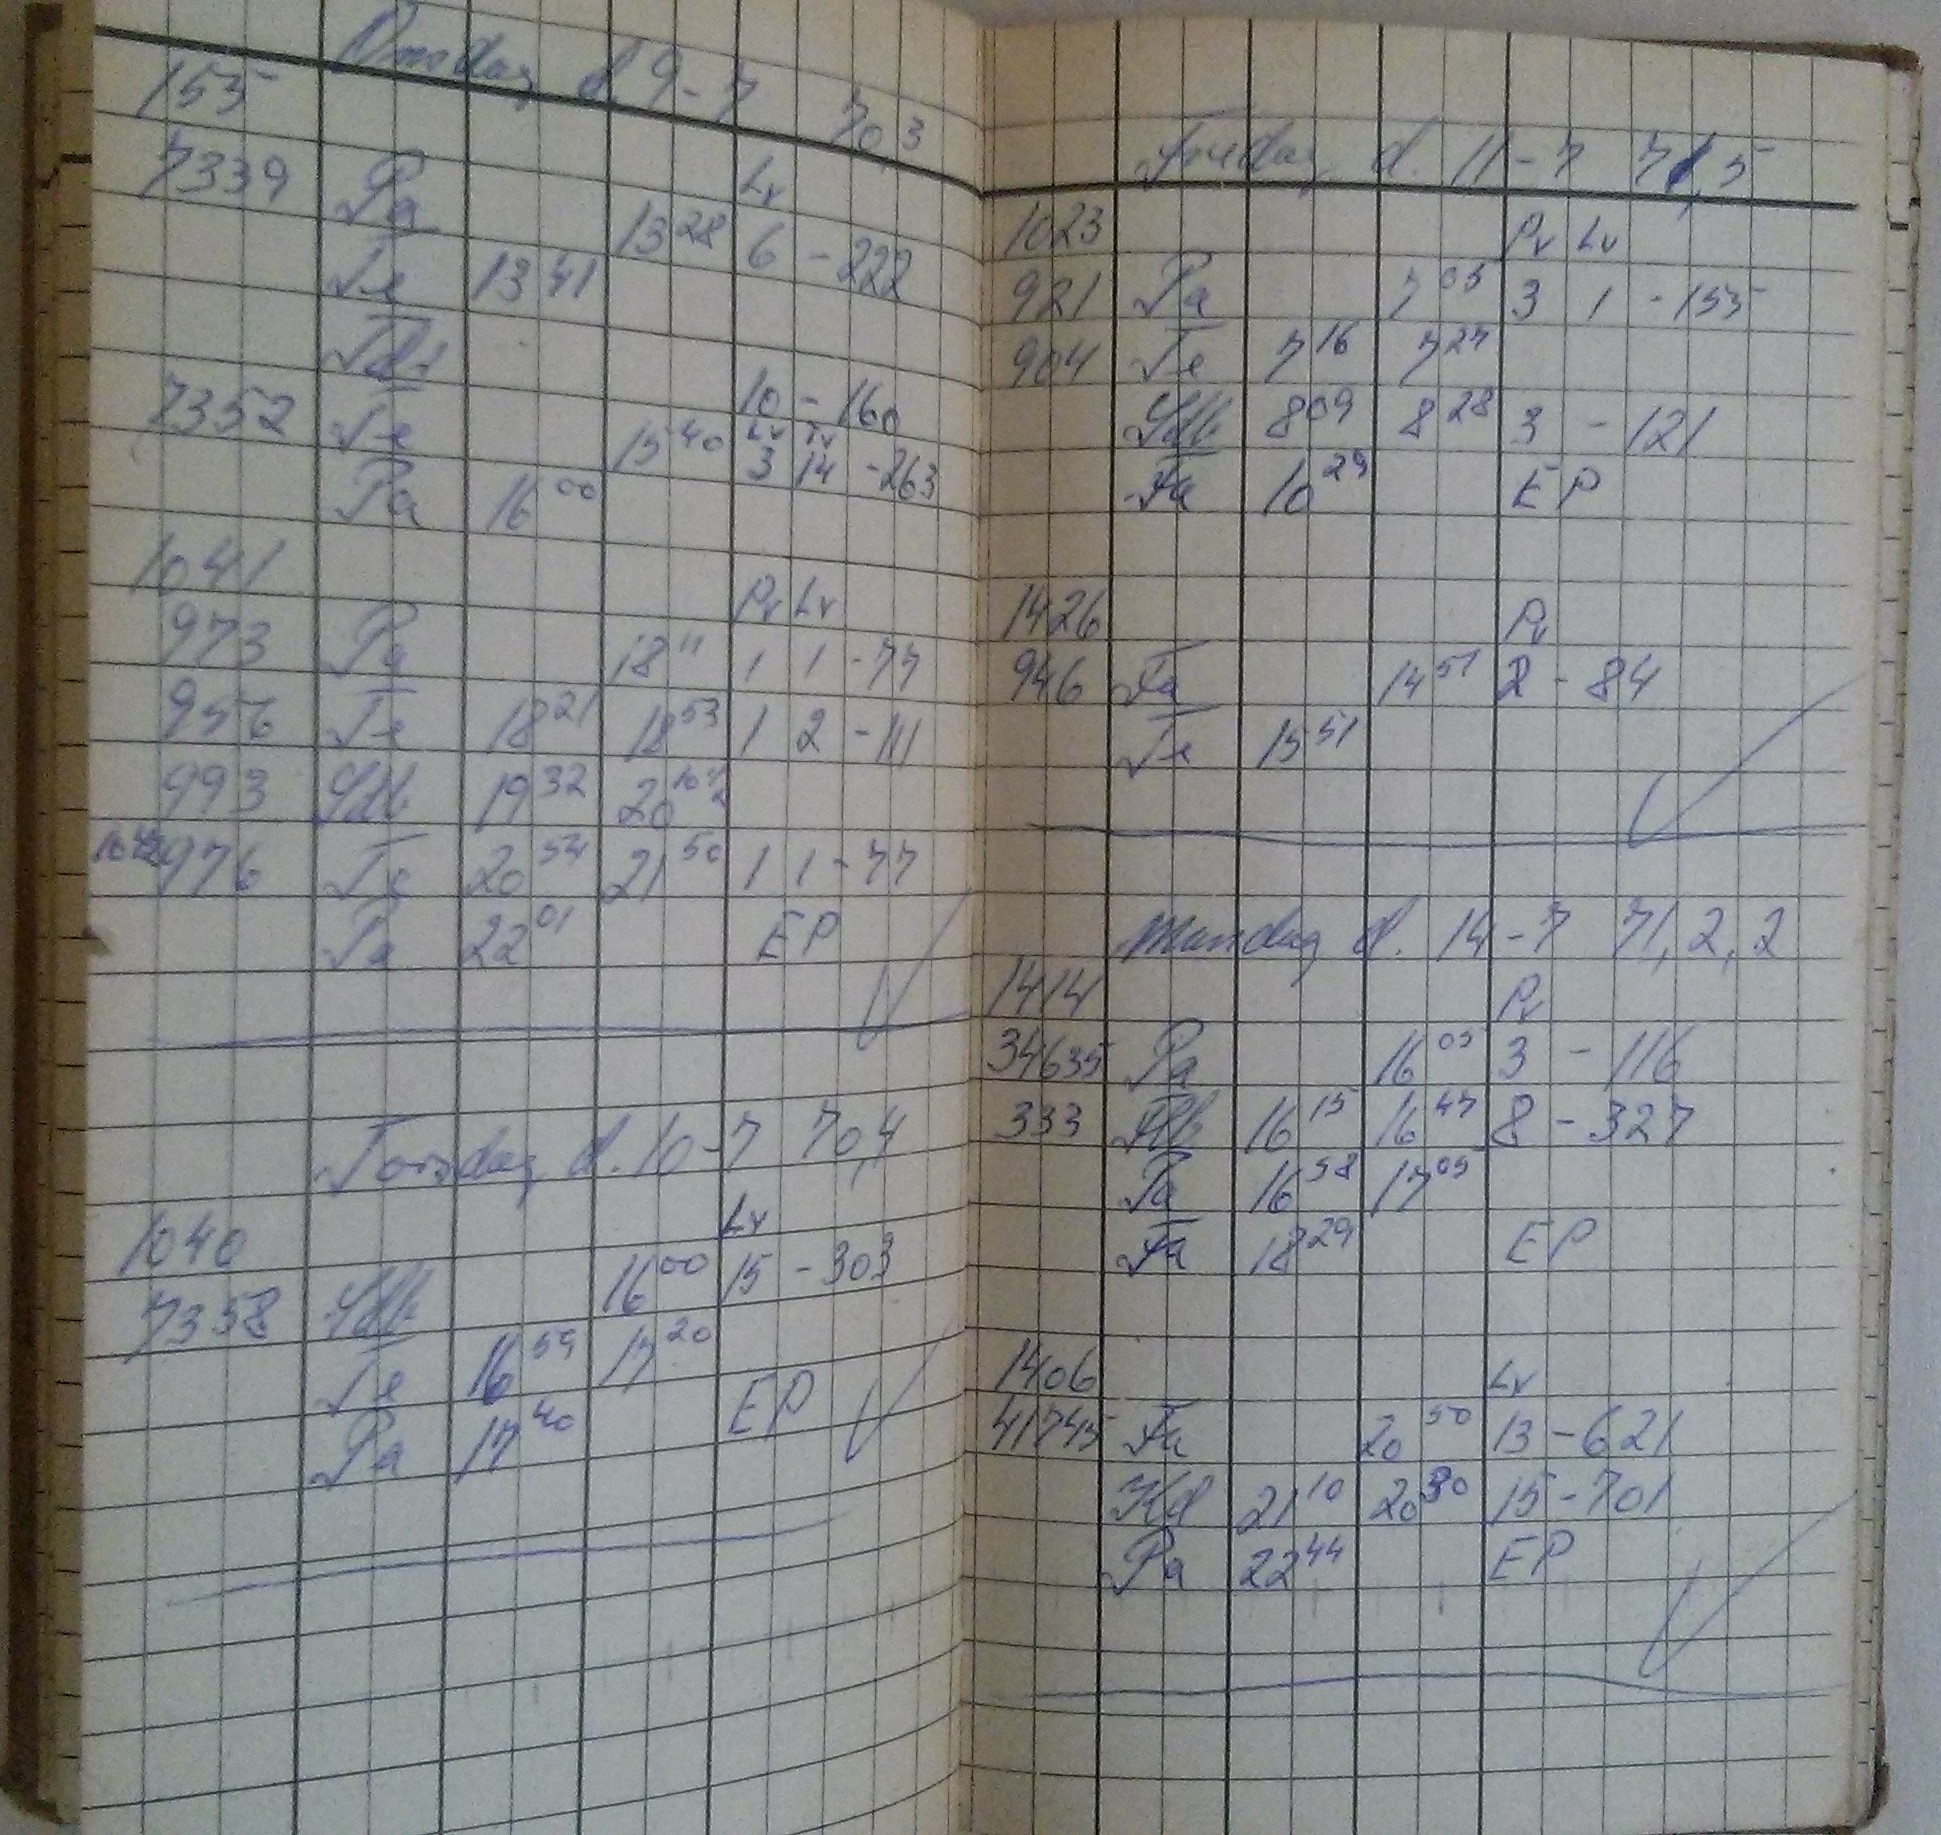 Onsdag d 9-7 70,3
155
7339 Pa Lv
13 28 6 - 222
Te 13 41
10 - 160
7352 Te 15 40 Lv Tv
3 14 - 263
Pa 16 00
1041
Pv Lv
973 Pa 18 11 1 1 - 77
956 Te 18 21 18 53 1 2 - 111
993 Sdb 19 32 20 10½
976 Te 20 54 21 50 1 1 - 77
Pa 22 01 EP
Torsdag d. 10-7 70,4
1040 Lv
7358 Sdb 16 00 15 - 303
Te 16 59 17 20
Pa 17 40 EP
Fredag d. 11-7 71,5
1023 Pv Lv
921 Pa 7 05 3 1 - 155
904 Te 7 16 7 27
Sdb 8 09 8 28 3 - 121
Fa 10 29 EP
1426 Pv
946 Fa 14 51 2 - 84
Te 15 51
Mandag d. 14-7 71,2,2
1414 Pv
34635 Pa 16 05 3 - 116
333 16 15 16 47 8 - 327
Pa 16 58 17 05
Fa 18 29 EP
1406 Lv
41745 Fa 20 50 13 - 621
Kd 21 10 20 30 15 - 701
Pa 22 44 EP